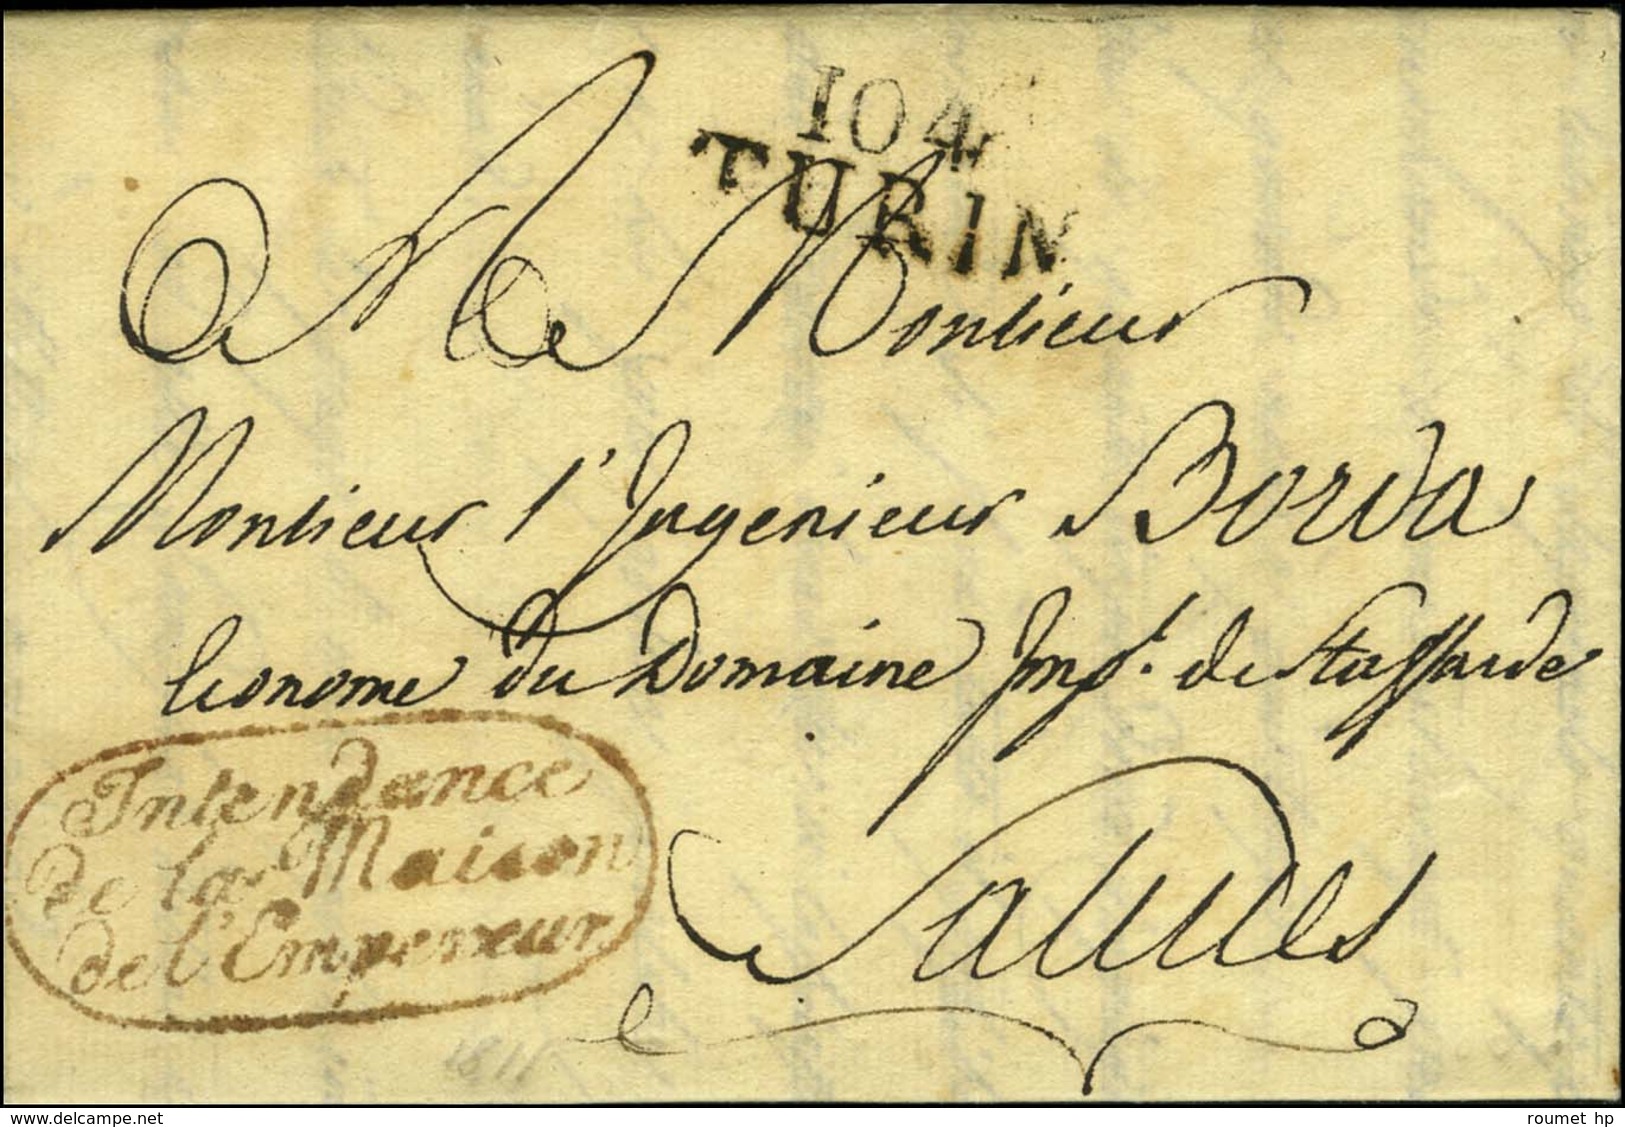 104
TURIN
A Monsieur
Monsieur l'Ingenieur Borda
Econome du Domaine Imp.l de Staffarde
Saluces
Intendance
de la Maison
de l'Empereur
1811
www.delcampe.net
roumet hp